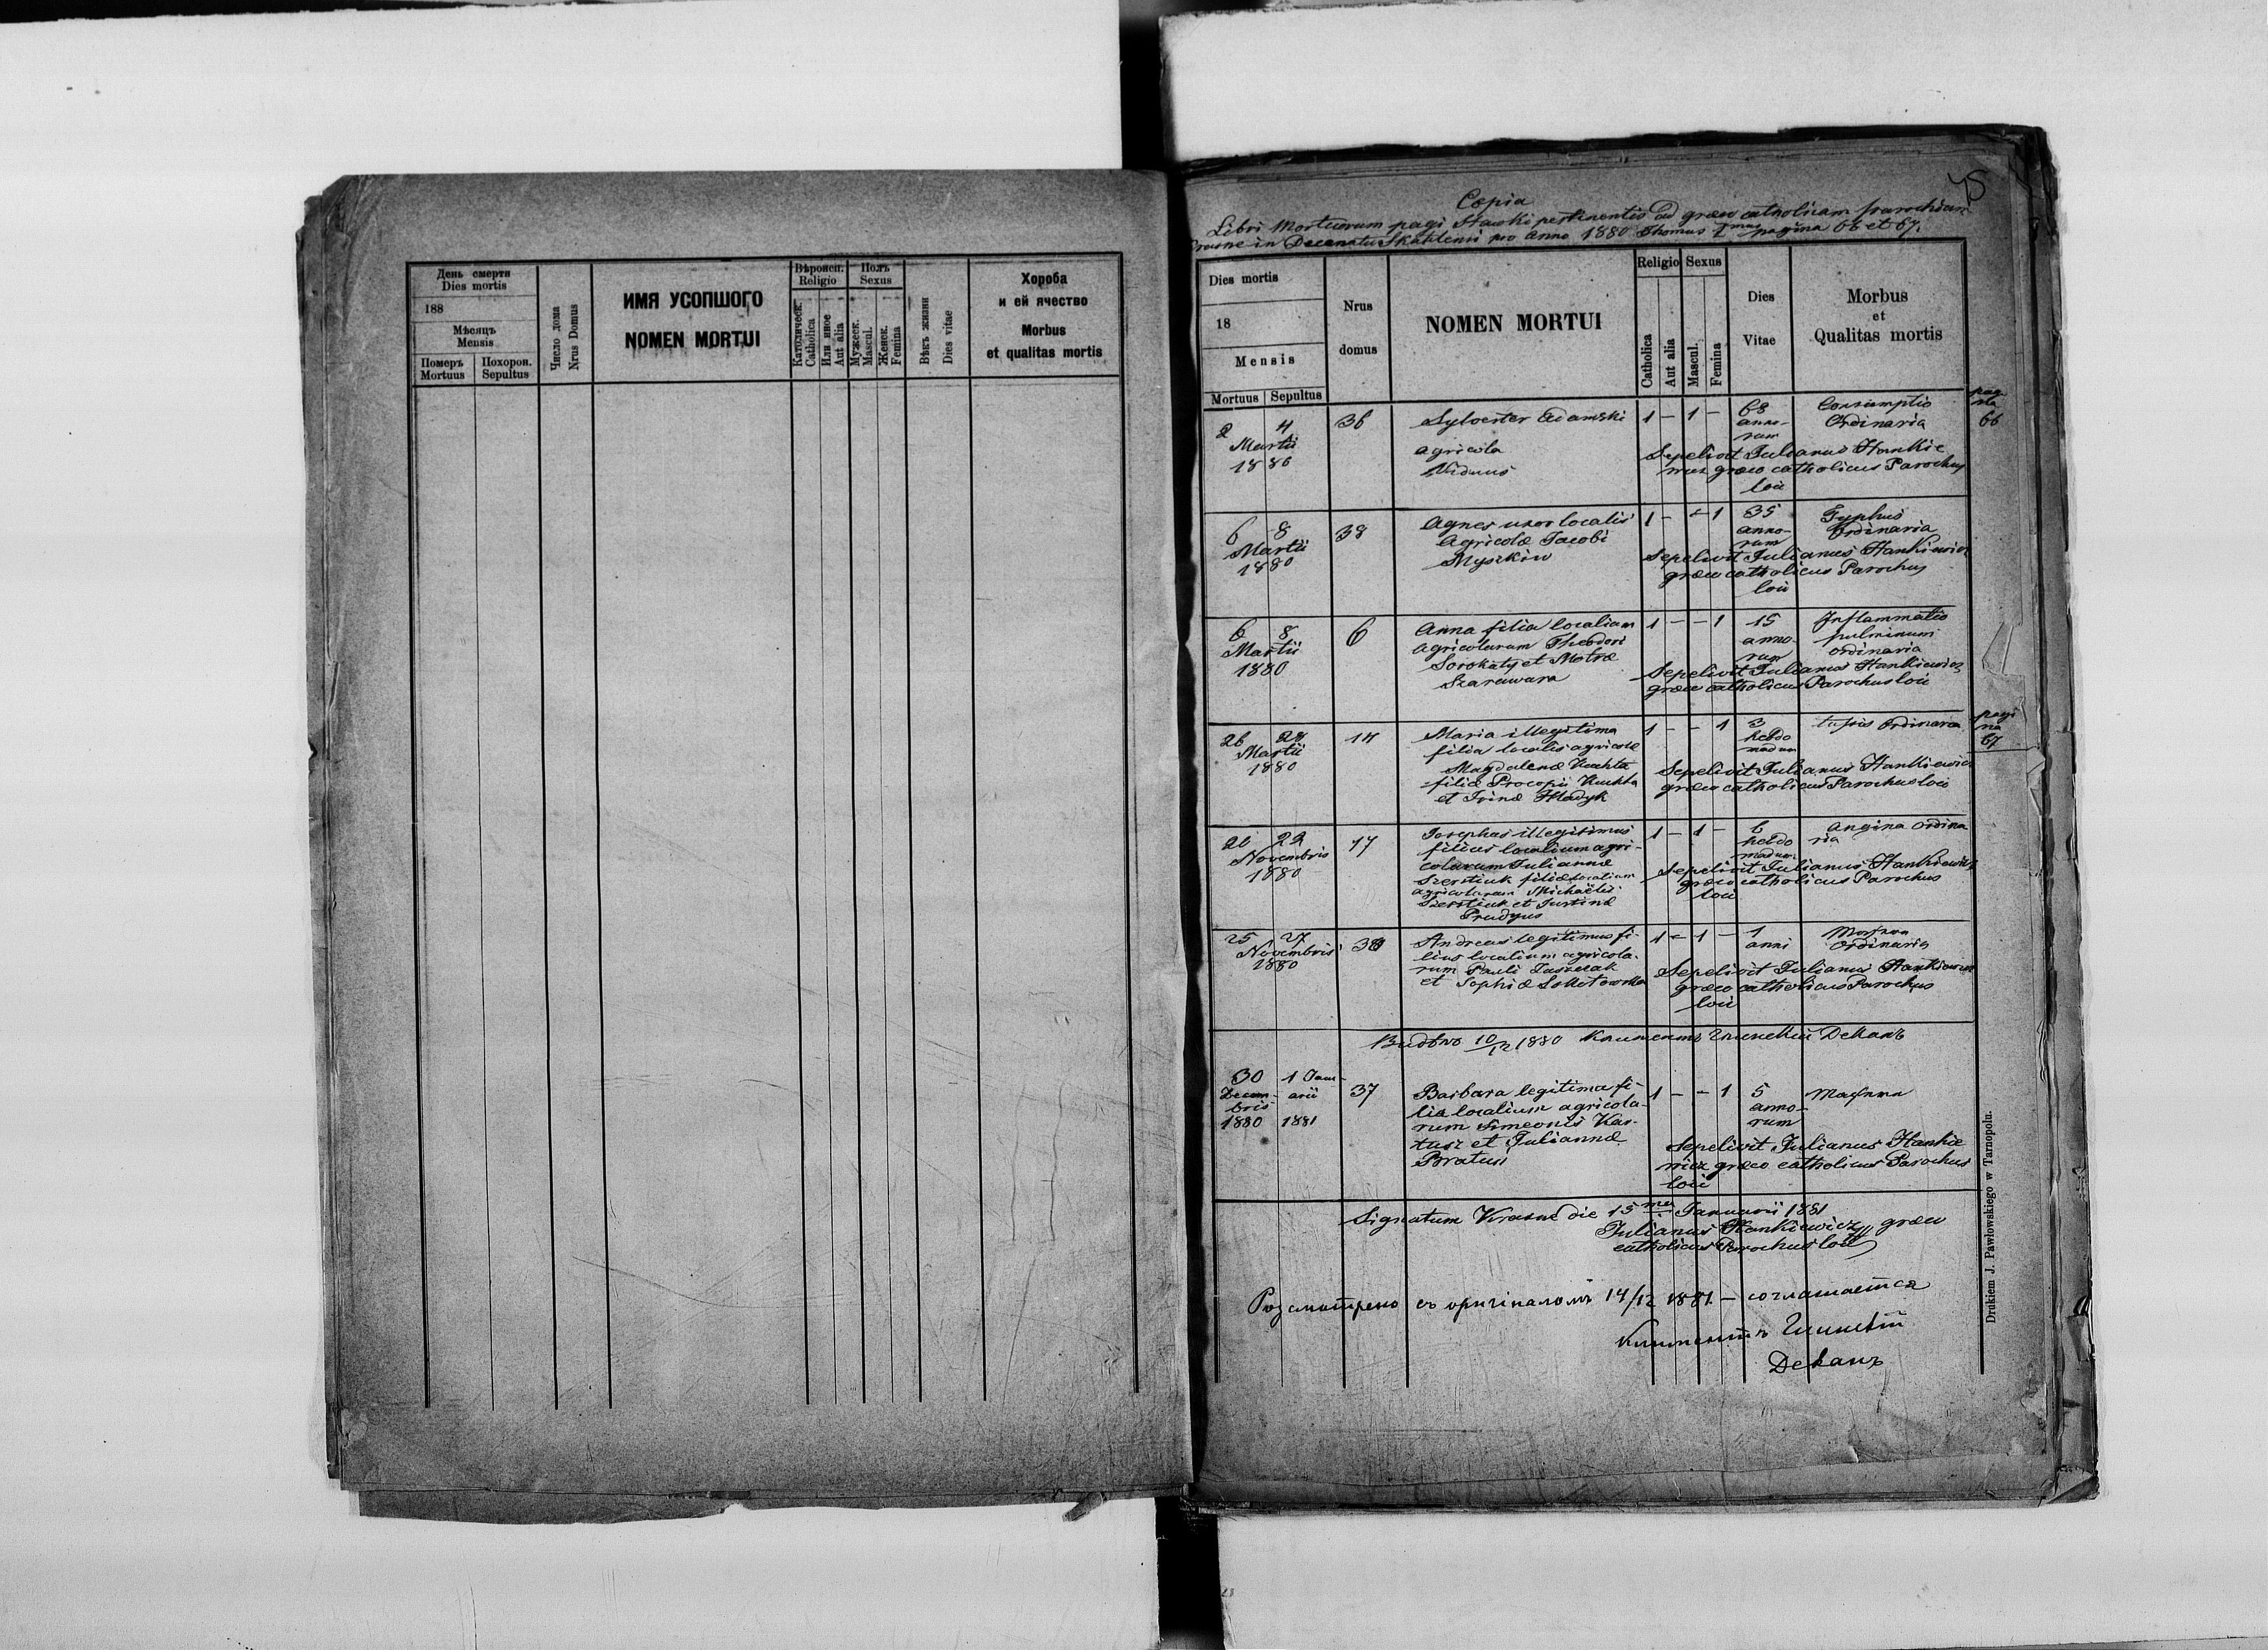 День смерти
Dies mortis
188
Мѣсяцъ
Mensis
Померъ
Mortuus
Похорон.
Sepultus
Число дома
Nrus Domus
ИМЯ УСОПШОГО
NOMEN MORTUI
Вѣроисп.
Religio
Католическ.
Catholica
Или иное
Aut alia
Полъ
Sexus
Мужеск.
Mascul.
Женск.
Femina
Вѣкъ жизни
Dies vitae
Хороба
и ей ячество
Morbus
et qualitas mortis
75
Copia
Libri Mortuorum pagi Stawki pertinentis ad graeco catholicam parochiam
Krasne in Decanatu Skalatensi pro anno 1880 Thomus I pagina 66 et 67.
Dies mortis
18
Mensis
Mortuus
Sepultus
Nrus
domus
NOMEN MORTUI
Religio
Catholica
Aut alia
Sexus
Mascul.
Femina
Dies
Vitae
Morbus
et
Qualitas mortis
pagi
na
66
2 4
Martii
1880
36
Sylvester Adamski
agricola
Viduus
1 - 1 -
68
anno-
rum
Consumptio
Ordinaria
Sepelivit Julianus Hankie
wicz graeco catholicus Parochus
loci
6 8
Martii
1880
38
Agnes uxor localis
Agricolæ Jacobi
Myszków
1 - - 1
35
anno-
rum
Typhus
Ordinaria
Sepelivit Julianus Hankiewicz
graeco catholicus Parochus
loci
6 8
Martii
1880
6
Anna filia localium
agricolarum Theodori
Sorokaty et Motræ
Szarawara
1 - - 1
15
anno-
rum
Inflammatio
pulminum
ordinaria
Sepelivit Julianus Hankiewicz
graeco catholicus Parochus loci
pagi
na
67
26 28
Martii
1880
14
Maria illegitima
filia localis agricolæ
Magdalenæ Kuchta
filiæ Procopii Kuchta
et Irinæ Hladyk
1 - - 1
3
hebdo
madum
tussis Ordinaria
Sepelivit Julianus Hankiewicz
graeco catholicus Parochus loci
20 22
Novembris
1880
17
Josephus illegitimus
filius localium agri-
colarum Juliannæ
Szerstiuk filiæ localium
agricolarum Michaëlis
Szerstiuk et Justinæ
Prudyus
1 - 1 -
6
hebdo
madum
Angina Ordina
ria
Sepelivit Julianus Hankiewicz
graeco catholicus Parochus
loci
25 27
Novembris
1880
38
Andreas legitimus fi-
lius localium agricola-
rum Pauli
et Sophiæ
1 - 1 -
1
anni
Ordinaria
Sepelivit Julianus Hankiewicz
graeco catholicus Parochus
loci
10/12 1880 Климентъ Деканъ
30 1 Janu-
Decem- arii
bris
1880 1881
37
Barbara legitima fi-
lia localium agricola-
rum Simeonis Kas-
tusz et Juliannæ
Bratus
1 - - 1
5
anno-
rum
Sepelivit Julianus Hankie
wicz graeco catholicus Parochus
loci
Signatum Krasne die 15 Januarii 1881
Julianus Hankiewicz graeco
catholicus Parochus loci
Розсмотрено съ оригіналомъ 14/12 1881 - соглашается
Климентъ
Деканъ
Drukiem J. Pawłowskiego w Tarnopolu.